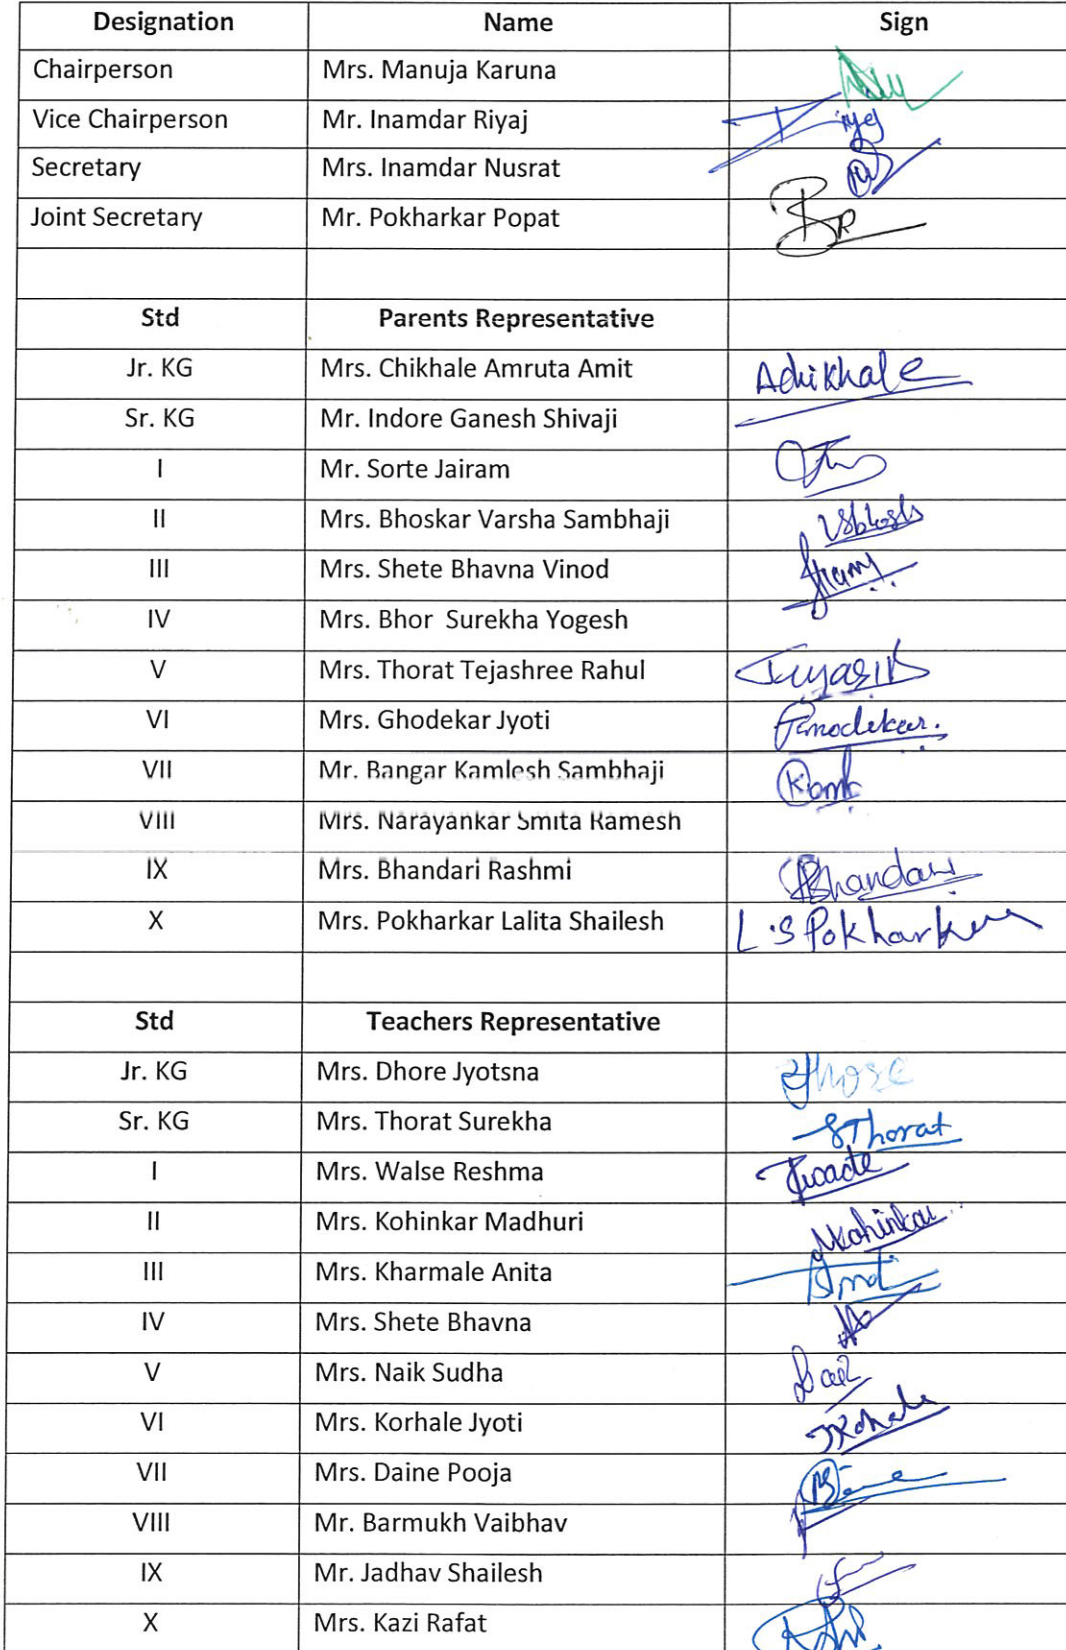 Designation Name Sign
Chairperson Mrs. Manuja Karuna
Vice Chairperson Mr. Inamdar Riyaj
Secretary Mrs. Inamdar Nusrat
Joint Secretary Mr. Pokharkar Popat
Std Parents Representative
Jr. KG Mrs. Chikhale Amruta Amit Achikhale
Sr. KG Mr. Indore Ganesh Shivaji
I Mr. Sorte Jairam
II Mrs. Bhoskar Varsha Sambhaji
III Mrs. Shete Bhavna Vinod
IV Mrs. Bhor Surekha Yogesh
V Mrs. Thorat Tejashree Rahul
VI Mrs. Ghodekar Jyoti
VII Mr. Bangar Kamlesh Sambhaji
VIII Mrs. Narayankar Smita Ramesh
IX Mrs. Bhandari Rashmi
X Mrs. Pokharkar Lalita Shailesh L.S Pokharkar
Std Teachers Representative
Jr. KG Mrs. Dhore Jyotsna
Sr. KG Mrs. Thorat Surekha SThorat
I Mrs. Walse Reshma
II Mrs. Kohinkar Madhuri Mkohinkar
III Mrs. Kharmale Anita
IV Mrs. Shete Bhavna
V Mrs. Naik Sudha
VI Mrs. Korhale Jyoti
VII Mrs. Daine Pooja
VIII Mr. Barmukh Vaibhav
IX Mr. Jadhav Shailesh
X Mrs. Kazi Rafat